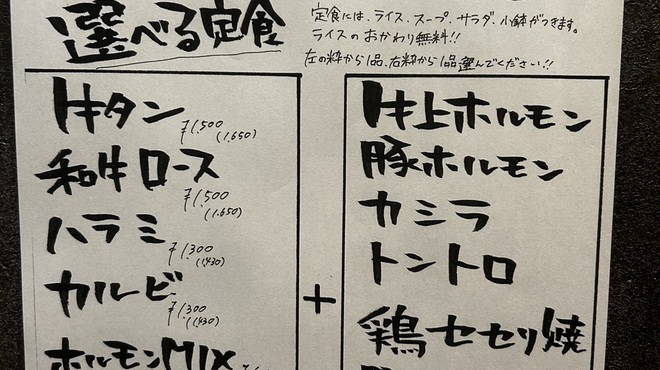 選べる定食
定食には、ライス、スープ、サラダ、小鉢がつきます。
ライスのおかわり無料!!
左の枠から1品、右枠から1品選んでください!!
牛タン ¥1,500 (1,650)
和牛ロース ¥1,500 (1,650)
ハラミ ¥1,300 (1,430)
カルビ ¥1,300 (1,430)
ホルモンMIX
+
牛上ホルモン
豚ホルモン
カシラ
トントロ
鶏セセリ焼